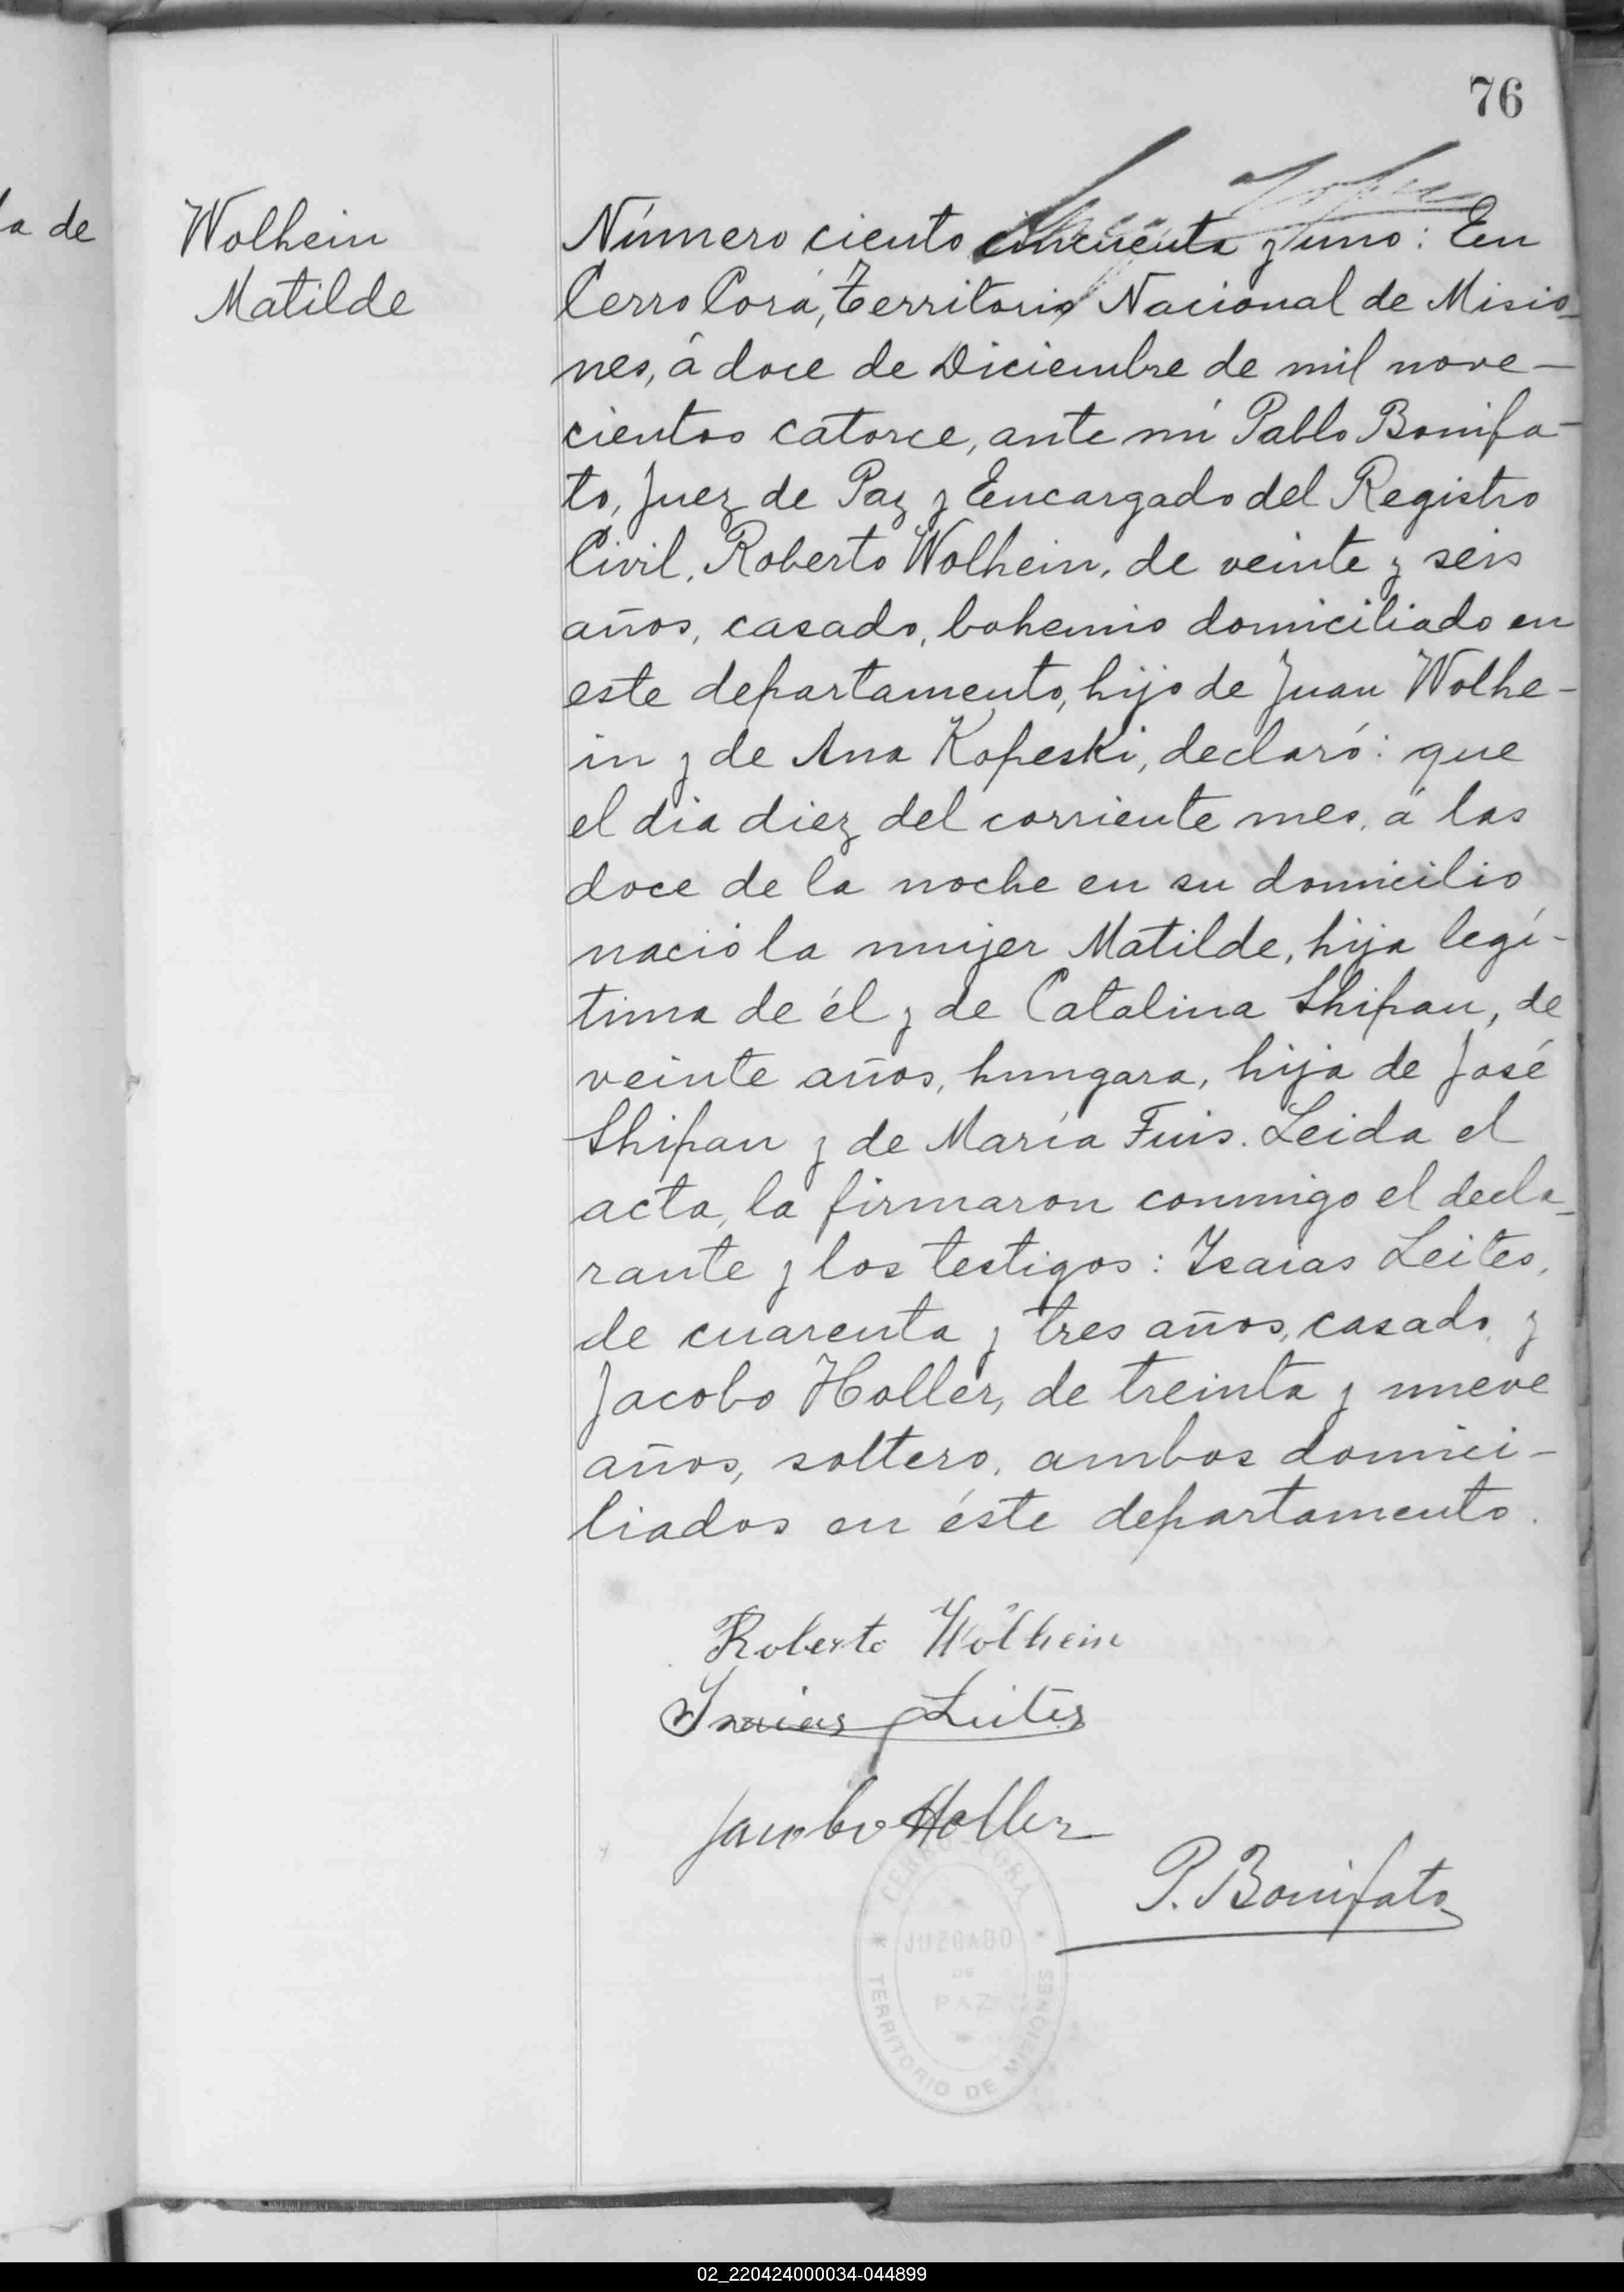 76
a de
Wolhein
Matilde
Número ciento cincuenta y uno: En
Cerro Corá, Territorio Nacional de Misio-
nes, á doce de Diciembre de mil nove-
cientos catorce, ante mi Pablo Bonifa-
to, Juez de Paz y Encargado del Registro
Civil, Roberto Wolhein, de veinte y seis
años, casado, bohemio domiciliado en
este departamento, hijo de Juan Wolhe-
in y de Ana Kopeski, declaró: que
el dia diez del corriente mes, á las
doce de la noche en su domicilio
nació la mujer Matilde, hija legí-
tima de él y de Catalina Shipan, de
veinte años, hungara, hija de José
Shipan y de María Fuis. Leida el
acta, la firmaron conmigo el decla-
rante y los testigos: Isaias Leites,
de cuarenta y tres años, casado y
Jacobo Holler, de treinta y nueve
años, soltero, ambos domici-
liados en éste departamento.
Roberto Wölhein
Isaias Leites
Jacobo Holler
P. Bonifato
CERRO CORA
JUZGADO
DE
PAZ
TERRITORIO DE MISIONES
02_220424000034-044899